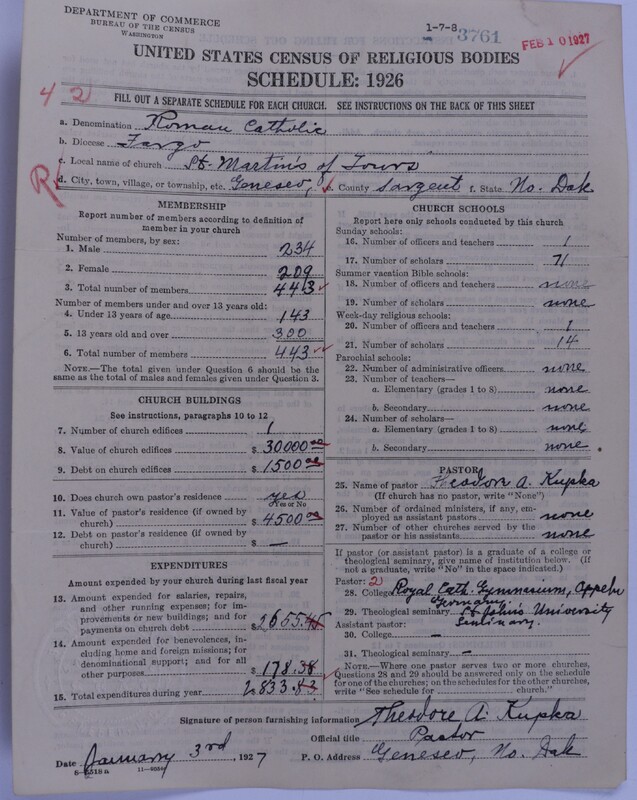 DEPARTMENT OF COMMERCE
BUREAU OF THE CENSUS
WASHINGTON
1-7-8
3761
FEB 10 1927
UNITED STATES CENSUS OF RELIGIOUS BODIES
SCHEDULE: 1926
4 2
FILL OUT A SEPARATE SCHEDULE FOR EACH CHURCH. SEE INSTRUCTIONS ON THE BACK OF THIS SHEET
a. Denomination Roman Catholic
b. Diocese Fargo
c. Local name of church St. Martin's of Tours
R
d. City, town, village, or township, etc. Geneseo, e. County Sargent f. State No. Dak
MEMBERSHIP
Report number of members according to definition of
member in your church
Number of members, by sex:
1. Male 234
2. Female 209
3. Total number of members 443
Number of members under and over 13 years old:
4. Under 13 years of age 143
5. 13 years old and over 300
6. Total number of members 443
NOTE.—The total given under Question 6 should be
same as the total of males and females given under Question 3.
CHURCH BUILDINGS
See instructions, paragraphs 10 to 12
7. Number of church edifices 1
8. Value of church edifices $ 30000 00
9. Debt on church edifices $ 1500 00
10. Does church own pastor's residence yes
Yes or No
11. Value of pastor's residence (if owned by
church) $ 4500 00
12. Debt on pastor's residence (if owned by
church) $ —
EXPENDITURES
Amount expended by your church during last fiscal year
13. Amount expended for salaries, repairs,
and other running expenses; for im-
provements or new buildings; and for
payments on church debt $ 2655.45
14. Amount expended for benevolences, in-
cluding home and foreign missions; for
denominational support; and for all
other purposes $ 178.38
15. Total expenditures during year 2833.83
CHURCH SCHOOLS
Report here only schools conducted by this church
Sunday schools:
16. Number of officers and teachers 1
17. Number of scholars 71
Summer vacation Bible schools:
18. Number of officers and teachers none
19. Number of scholars none
Week-day religious schools:
20. Number of officers and teachers 1
21. Number of scholars 14
Parochial schools:
22. Number of administrative officers none
23. Number of teachers—
a. Elementary (grades 1 to 8) none
b. Secondary none
24. Number of scholars—
a. Elementary (grades 1 to 8) none
b. Secondary none
PASTOR
25. Name of pastor Theodore A. Kupka
(If church has no pastor, write "None")
26. Number of ordained ministers, if any, em-
ployed as assistant pastors none
27. Number of other churches served by the
pastor or his assistants none
If pastor (or assistant pastor) is a graduate of a college or
theological seminary, give name of institution below. (If
not a graduate, write "No" in the space indicated.)
Pastor: 2
28. College Royal Cath. Gymnasium, Oppeln
Germany
29. Theological seminary St. John's University
Assistant pastor: Seminary.
30. College —
31. Theological seminary —
NOTE.—Where one pastor serves two or more churches,
Questions 28 and 29 should be answered only on the schedule
for one of the churches; on the schedules for the other churches,
write "See schedule for church."
Signature of person furnishing information Theodore A. Kupka
Official title Pastor
Date January 3rd, 1927 P. O. Address Geneseo, No. Dak